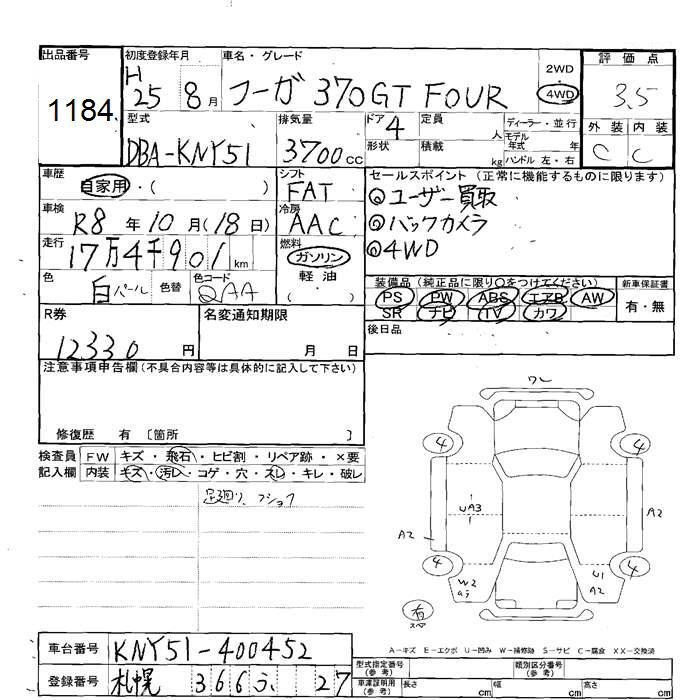 出品番号
1184
初度登録年月
H25 8月
車名・グレード
フーガ 370GT FOUR
2WD
4WD
評価点
3.5
外装 内装
C C
型式
DBA-KNY51
排気量
3700cc
ドア
4
形状
定員
人
積載
kg
ディーラー・並行
モデル年式 年
ハンドル 左・右
車歴
自家用・( )
シフト
FAT
車検
R8年10月(18日)
冷房
AAC
走行
17万4千901km
燃料
ガソリン
軽油
( )
色
白パール
色替
色コード
QAA
セールスポイント (正常に機能するものに限ります)
◎ユーザー買取
◎バックカメラ
◎4WD
装備品 (純正品に限り○をつけてください)
PS PW ABS エアB AW
SR ナビ TV カワ
新車保証書
有・無
後日品
R券
12330円
名変通知期限
月 日
注意事項申告欄 (不具合内容等は具体的に記入して下さい)
修復歴 有 〔箇所 〕
検査員記入欄
FW キズ・飛石・ヒビ割・リペア跡・×要
内装 キズ・汚れ・コゲ・穴・スレ・キレ・破レ
足廻り、フショク
ワレ
4 4
UA3
A2 A2
4 4
W2
U1
A2
有
スペア
A-キズ E-エクボ U-凹み W-補修跡 S-サビ C-腐食 XX-交換済
車台番号
KNY51-400452
登録番号
札幌 366 ふ 27
型式指定番号
(参考)
類別区分番号
(参考)
車庫証明用
(参考)
長さ cm 幅 cm 高さ cm